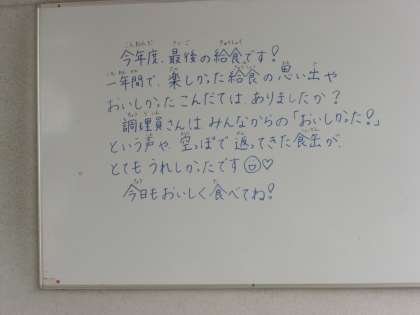 今年度、最後の給食です!
一年間で、楽しかった給食の思い出や
おいしかったこんだては、ありましたか?
調理員さんは、みんなからの「おいしかった!」
という声や、空っぽで返ってきた食缶が、
とてもうれしかったです♡
今日もおいしく食べてね!